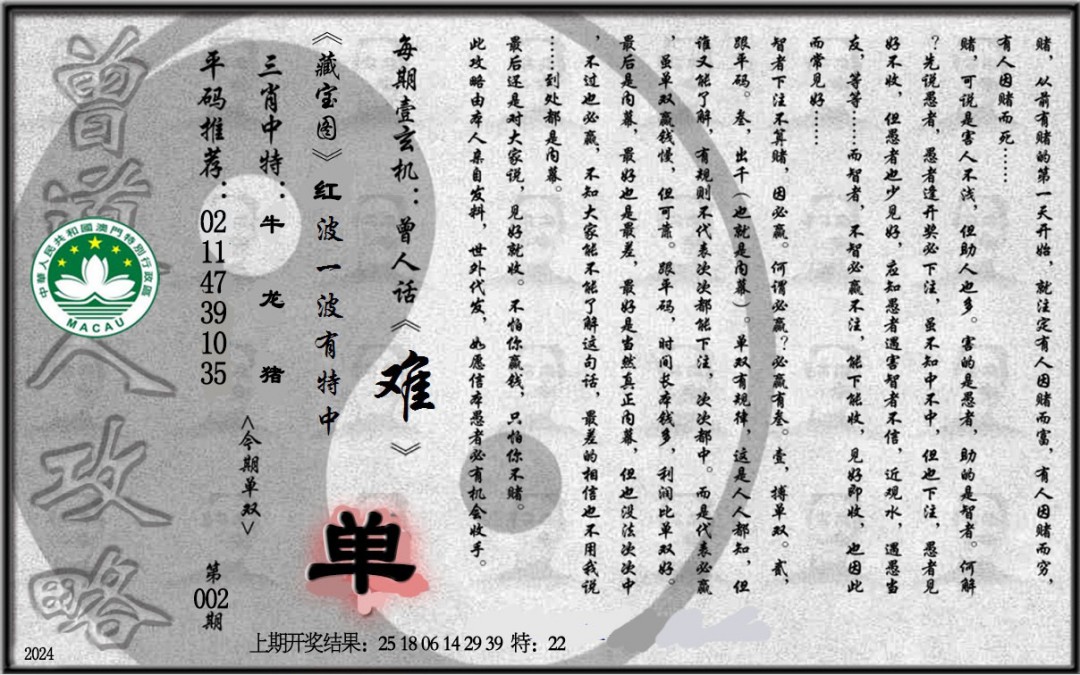 赌，从前有赌的第一天开始，就注定有人因赌而富，有人因赌而穷，
有人因赌而死……
赌，可说是害人不浅，但助人也多。害的是愚者，助的是智者。何解
？先说愚者，愚者逢开奖必下注，虽不知中不中，但也下注，愚者见
好不收，但愚者也少见好，应知愚者遇害智者不信，近观水，遇愚当
友，等等……而智者，不智必赢不注，能下能收，见好即收，也因此
而常见好……
智者下注不算赌，因必赢。何谓必赢？必赢有叁。壹，搏单双。贰，
跟平码。叁，出千（也就是内幕）。单双有规律，这是人人都知，但
谁又能了解，有规则不代表次次都能下注，次次都中。而是代表必赢
，虽单双赢钱慢，但可靠。跟平码，时间长本钱多，利润比单双好。
最后是内幕，最好也是最差，最好是当然真正内幕，但也没法次次中
，不过也必赢，不知大家能不能了解这句话，最差的相信也不用我说
……到处都是内幕。
最后还是对大家说，见好就收。不怕你赢钱，只怕你不赌。
此攻略由本人亲自发料，世外代发，如愿信本愚者必有机会收手。
每期壹玄机：曾人话《难》
《藏宝图》红波一波有特中
三肖中特：牛龙猪
平码推荐：02 11 47 39 10 35
<今期单双>
单
第002期
曾道人攻略
中華人民共和國澳門特別行政區
MACAU
上期开奖结果：25 18 06 14 29 39 特：22
2024